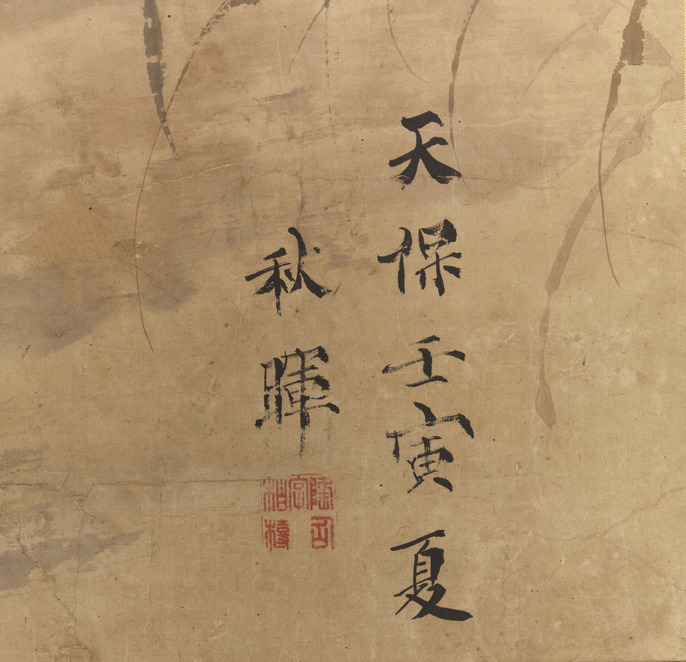 天保壬寅夏
秋暉